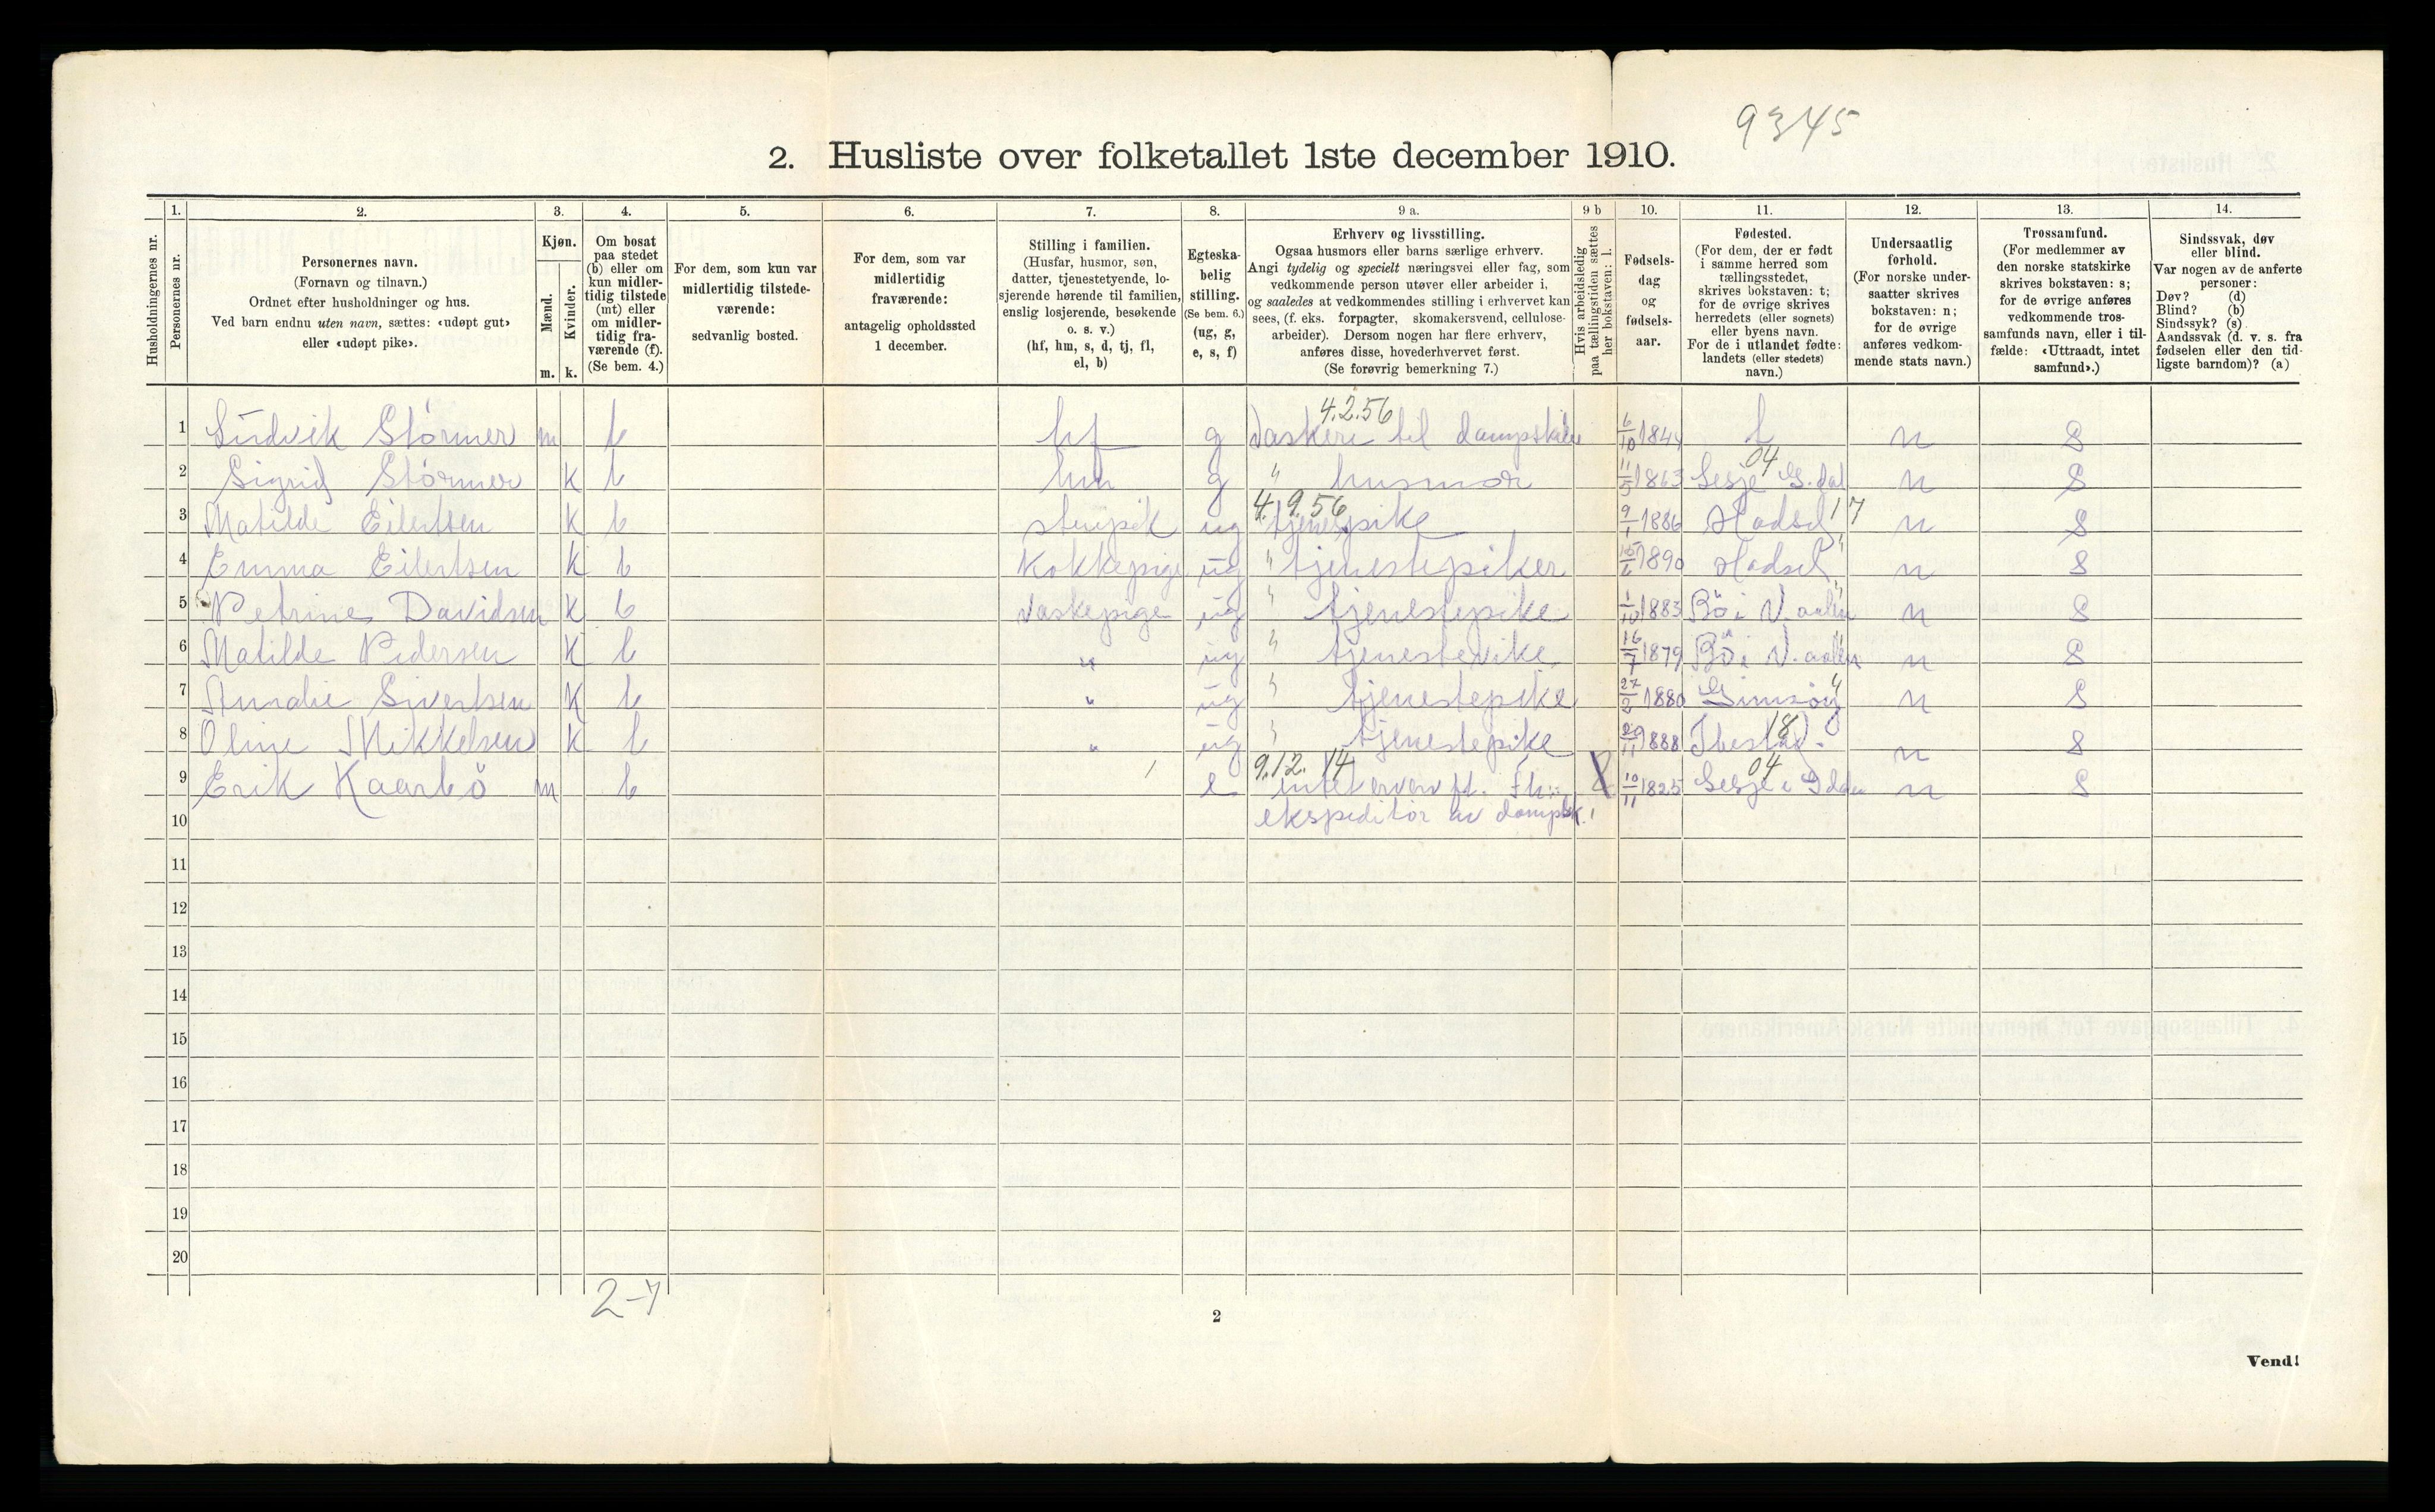 9345
2. Husliste over folketallet 1ste december 1910.
Husholdningernes nr.
1. Personernes nr.
2. Personernes navn.
(Fornavn og tilnavn.)
Ordnet efter husholdninger og hus.
Ved barn endnu uten navn, sættes: «udøpt gut»
eller «udøpt pike».
3. Kjøn.
Mænd. Kvinder.
m. k.
4. Om bosat
paa stedet
(b) eller om
kun midler-
tidig tilstede
(mt) eller
om midler-
tidig fra-
værende (f).
(Se bem. 4.)
5. For dem, som kun var
midlertidig tilstede-
værende:
sedvanlig bosted.
6. For dem, som var
midlertidig
fraværende:
antagelig opholdssted
1 december.
7. Stilling i familien.
(Husfar, husmor, søn,
datter, tjenestetyende, lo-
sjerende hørende til familien,
enslig losjerende, besøkende
o. s. v.)
(hf, hm, s, d, tj, fl,
el, b)
8. Egteska-
belig
stilling.
(Se bem. 6.)
(ug, g,
e, s, f)
9 a. Erhverv og livsstilling.
Ogsaa husmors eller barns særlige erhverv.
Angi tydelig og specielt næringsvei eller fag, som
vedkommende person utøver eller arbeider i,
og saaledes at vedkommendes stilling i erhvervet kan
sees, (f. eks. forpagter, skomakersvend, cellulose-
arbeider). Dersom nogen har flere erhverv,
anføres disse, hovederhvervet først.
(Se forøvrig bemerkning 7.)
9 b Hvis arbeidsledig
paa tællingstiden sættes
her bokstaven: l.
10. Fødsels-
dag
og
fødsels-
aar.
11. Fødested.
(For dem, der er født
i samme herred som
tællingsstedet,
skrives bokstaven: t;
for de øvrige skrives
herredets (eller sognets)
eller byens navn.
For de i utlandet fødte:
landets (eller stedets)
navn.)
12. Undersaatlig
forhold.
(For norske under-
saatter skrives
bokstaven: n;
for de øvrige
anføres vedkom-
mende stats navn.)
13. Trossamfund.
(For medlemmer av
den norske statskirke
skrives bokstaven: s;
for de øvrige anføres
vedkommende tros-
samfunds navn, eller i til-
fælde: «Uttraadt, intet
samfund».)
14. Sindssvak, døv
eller blind.
Var nogen av de anførte
personer:
Døv? (d)
Blind? (b)
Sindssyk? (s)
Aandssvak (d. v. s. fra
fødselen eller den tid-
ligste barndom)? (a)
4.2.56
1 Ludvik Störmer m b hf g Vaskeri til 6/10 1844 t n S
04
2 Sigrid Störmer K b hm g " husmor 11/5 1863 Lesje G.dal n S
4.9.56 17
3 Matilde Eilertsen K b ug tjenestpike 9/1 1886 Hadsel n S
4 Emma Eilertsen K b Kokkepige ug " tjenestepiker 15/6 1890 Hadsel " n S
5 Petrine Davidsen K b Vaskepige ug " tjenestepike 1/10 1883 Bö i V.aalen " n S
6 Matilde Pedersen K b " ug " tjenestepike 16/7 1879 Bö i V.aalen " n S
7 Amalie Sivertsen K b " ug " tjenestepike 27/2 1880 Gimsöy " n S
18
8 Oline Mikkelsen K b " ug " tjenestepike 29/11 1888 Ibestad n S
9.12. 14 04
9 Erik Kaarbö m b e intet erverv ft. fh. 10/11 1825 Lesje i Gdalen n S
10 ekspeditör av dampsk.
11
12
13
14
15
16
17
18
19
20
2-7
2
Vend!